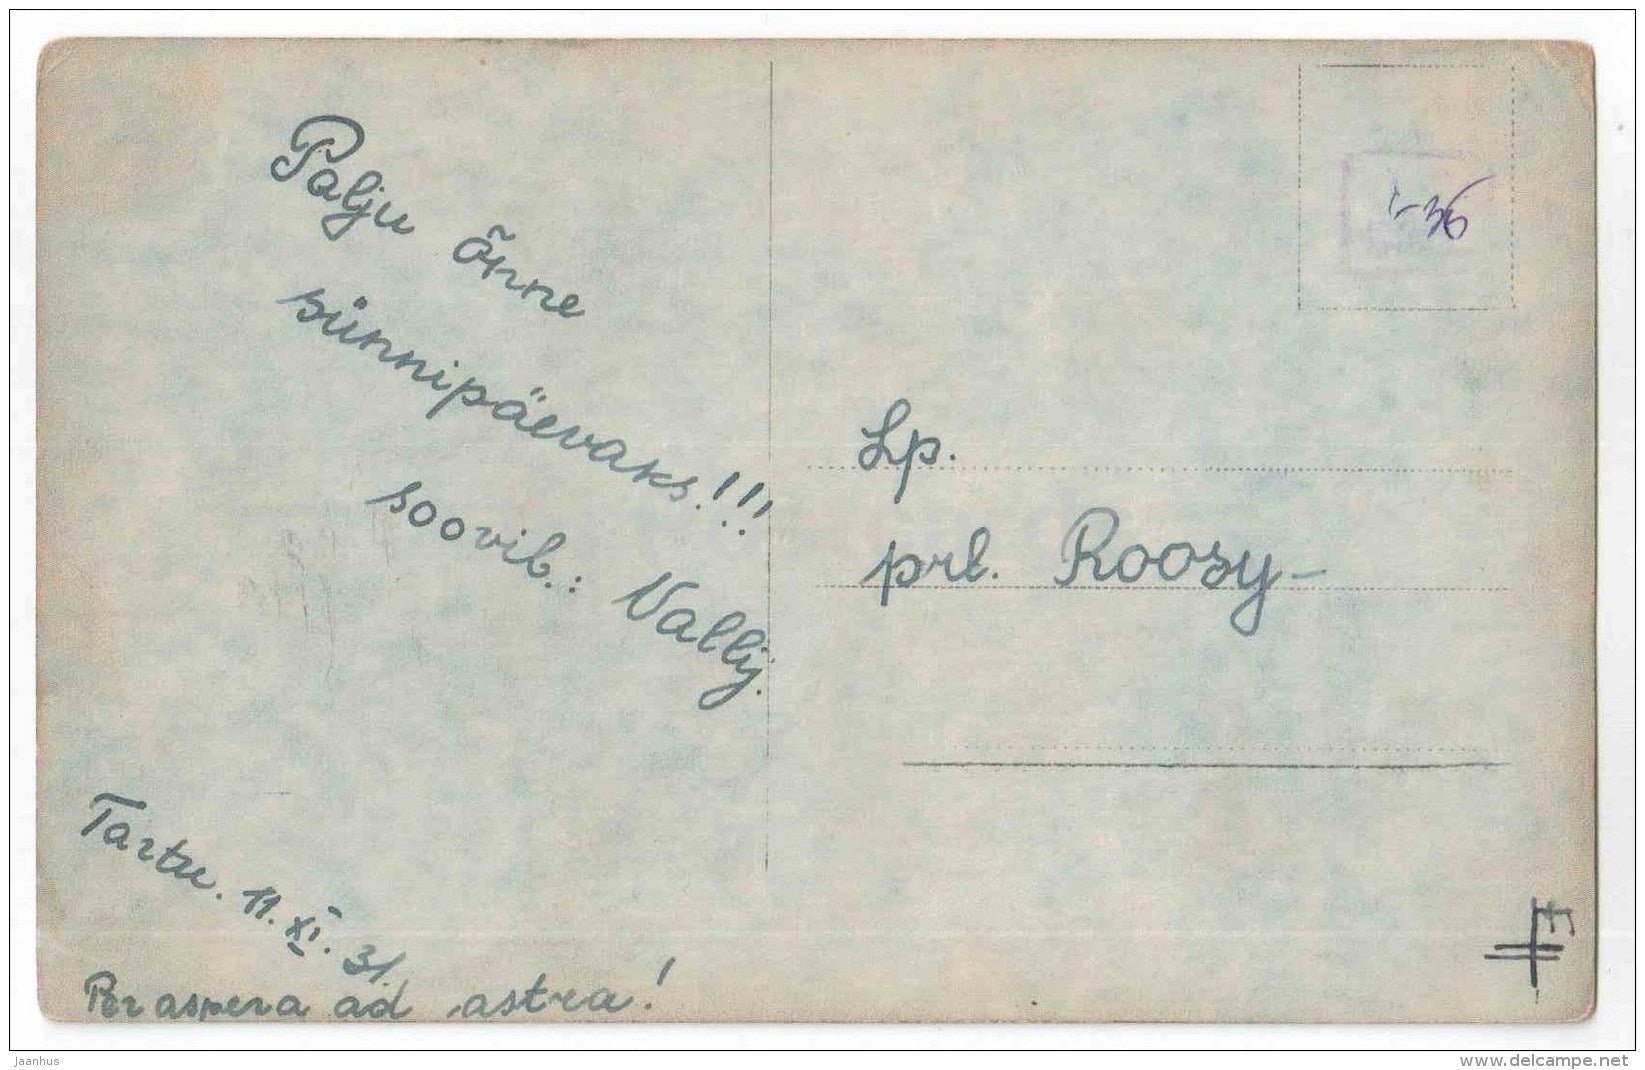 Palju õnne
sünnipäevaks!!!
soovib.: Vallÿ.
Tartu. 11.XI.31.
Per aspera ad astra!
Lp.
prl. Roosy-
jaanhus
www.delcampe.net